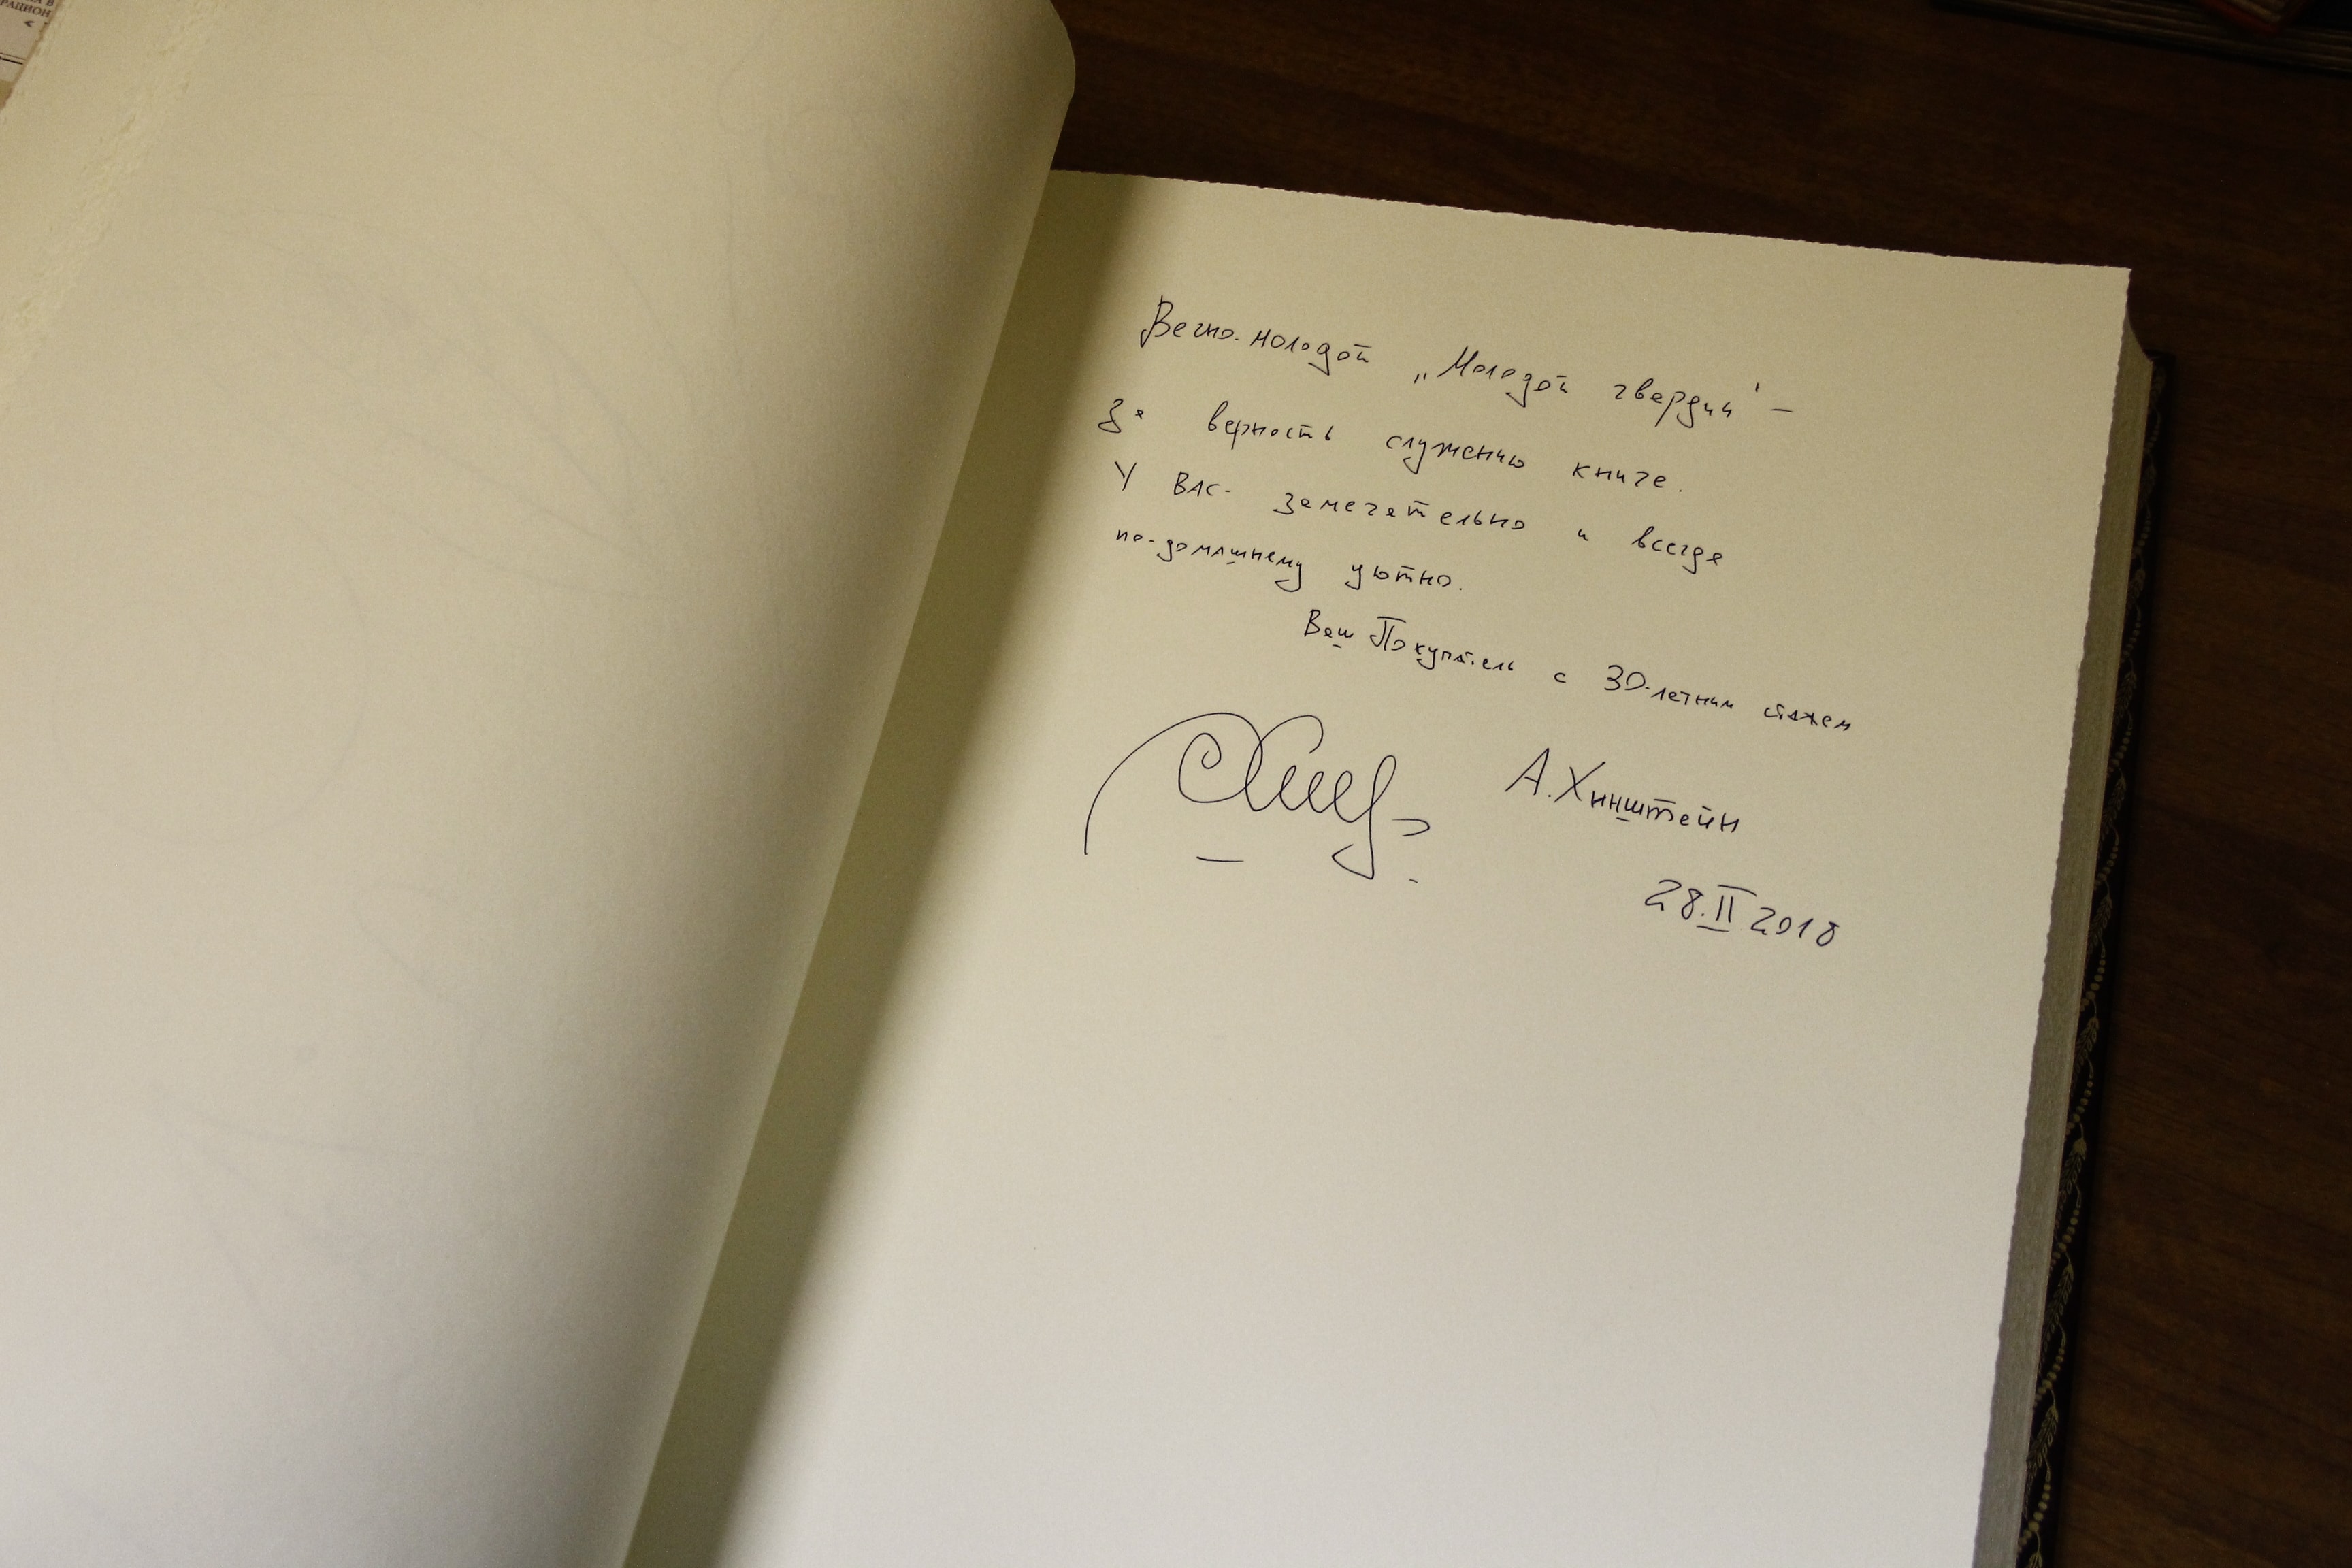 РАЦИОН
Вечно-молодой „Молодой гвардии" –
За верность служению книге.
У ВАС- замечательно и всегда
по-домашнему уютно.
Ваш Покупатель с 30-летним стажем
А. Хинштейн
28.II 2018